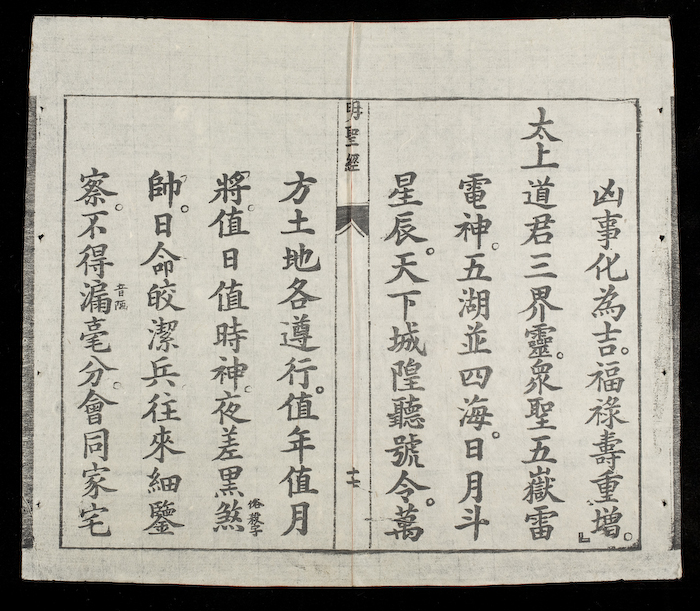 凶事化為吉。福祿壽重增。』
太上道君三界靈。衆聖五嶽雷
電神。五湖並四海。日月斗
星辰。天下城隍聽號令。萬
明聖經
十七
方土地各遵行。值年值月
將。值日值時神。夜差黑煞俗殺字
帥。日命皎潔兵往來細鑒
察。不得漏音陋毫分。會同家宅